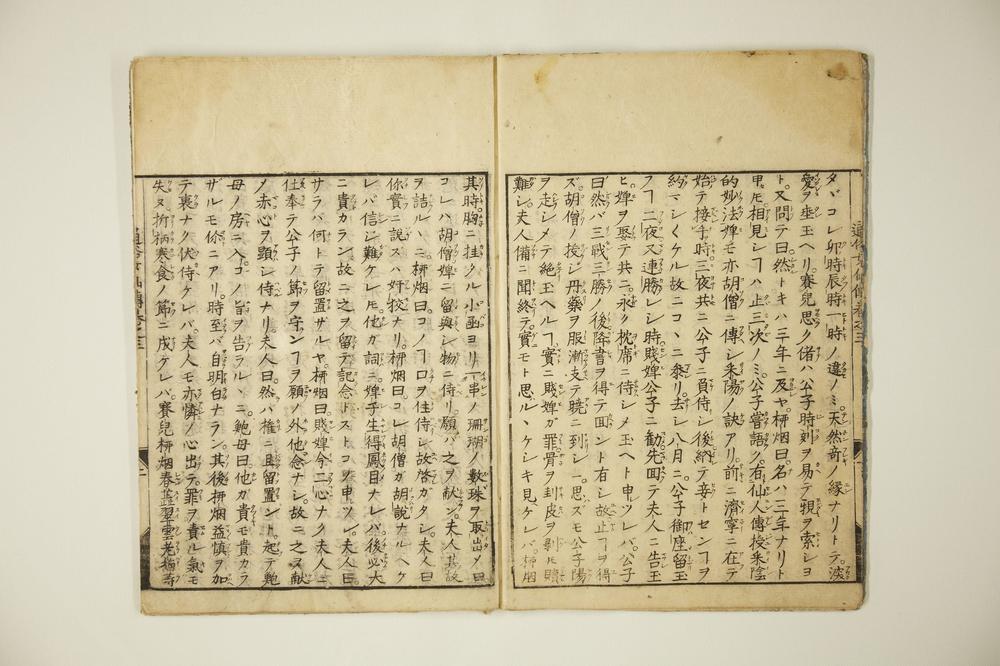 タバコレ卯時辰時一時ノ違ノミ天然奇ノ縁ナリトテ
愛ヲ垂玉ヘリ。賽兒思ク儲ハ公子時刻ヲ易テ覡ヲ索シヨ
ト。又問テ曰然トキハ三年ニ及ヤ。柟烟曰名ハ三年ナリト
申𪜈相見シヿハ止三次ノミ。公子嘗語ク有仙人傳授采陰
的妙法婢モ亦胡僧ニ傳シ采陽ノ訣アリ。前ニ濟寧ニ在テ
始テ接乎時三夜共ニ公子ニ負侍シ後納テ妾トセンヿヲ
約 シクケル故ニコヽニ参リ。去シ八月ニ公子御座留玉
フヿ二夜又連勝シ時賤婢公子ニ勧先面テ夫人ニ告玉
ヒ婢ヲ娶テ共ニ永ク枕席ニ侍シメ玉ヘト申ツレバ。公子
曰然バ三戰三勝ノ後降書ヲ得テ面ント有シ故止ヿヲ得
ズ。胡僧ノ授シ丹藥ヲ服漸支テ曉ニ到シ。思ズモ公子陽
ヲ走シメテ絶玉ヘルヿ實ニ賤婢ガ罪骨ヲ剉皮ヲ剥𪜈贖
難シ夫人備ニ聞終テ實モト思ルヽケシキ見ヘケレバ。柟烟
其時胸ニ挂クル小函ヨリ一串ノ珊瑚ノ數珠ヲ取出メ曰
コレハ胡僧婢ニ留與シ物ニ侍リ。願バ之ヲ献ン。夫人其故
ヲ詰ルヽニ。柟烟曰コノヿ口ヲ住侍レ故啓ガタシ。夫人曰
你實ニ説ズハ奸狡ナリ。柟烟曰コレ胡僧ガ胡説ナルヘケ
レバ信シ難ケレ𪜈。他ガ詞ニ婢乎生得鳳目ナレバ。後必大
ニ貴カラン故ニ之ヲ留テ記念トストコヲ申ツレ。夫人曰
サラバ何トテ留置ザルヤ。柟烟曰賤婢今二心ナク夫人ニ
仕奉テ公子ノ節ヲ守ンヿヲ願ノ外他念ナシ。故ニ之ヌ献
ノ赤心ヲ顕シ侍ナリ夫人曰然バ權ニ且留置ント。起テ鮑
母ノ房ニ入。コノ旨ヲ告ラルヽニ。鮑母曰他ガ貴モ貴カラ
ザルモ你ニアリ。時至バ自明白ナラン。其後柟烟益慎ヲ加
テ衷ナク伏侍ケレバ。夫人モ亦憐ノ心出テ罪ヲ責ル氣モ
失ヌ抑柄寒食ノ節ニ成ケレバ。賽兒柟烟春蕋翠雲老梅